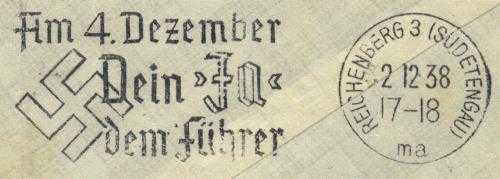 Am 4. Dezember
Dein »Ja«
dem Führer
REICHENBERG 3 (SUDETENGAU)
2 12 38
17–18
ma